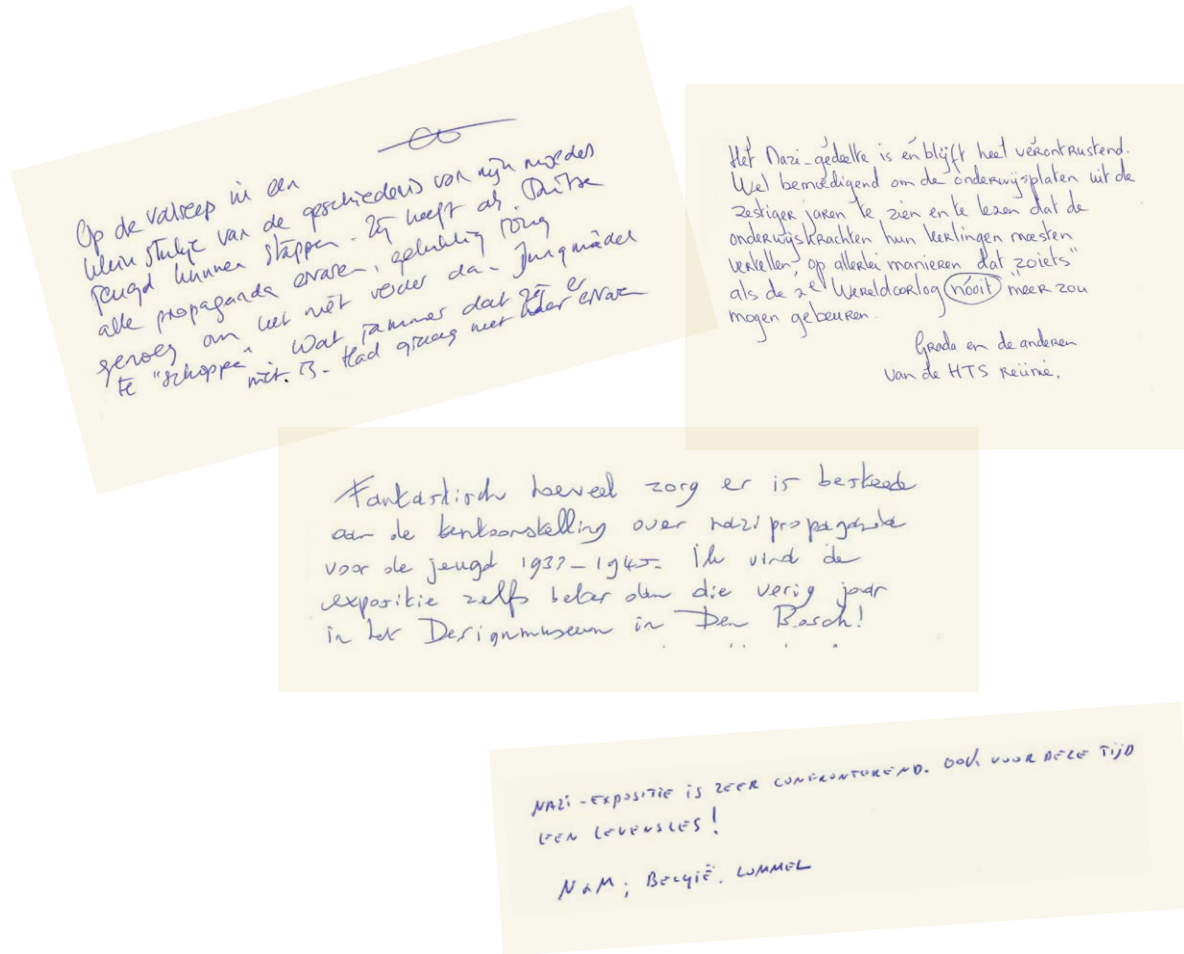 Op de valreep in een
klein stukje van de geschiedenis van mijn moeders
jeugd kunnen stappen. Zij heeft als Duitse
alle propaganda ervaren, gelukkig jong
genoeg om het niet verder dan Jungmädel
te "schoppen". Wat jammer dat zij er
niet Had graag met haar ervaren
Het Nazi-gedeelte is en blijft heel verontrustend.
Wel bemoedigend om de onderwijsplaten uit de
zestiger jaren te zien en te lezen dat de
onderwijskrachten hun leerlingen moesten
vertellen, op allerlei manieren dat "zoiets"
als de 2e Wereldoorlog nóóit meer zou
mogen gebeuren.
Grada en de anderen
van de HTS Reünie.
Fantastisch hoeveel zorg er is besteed
aan de tentoonstelling over nazipropaganda
voor de jeugd 1933-1945. Ik vind de
expositie zelfs beter dan die vorig jaar
in het Designmuseum in Den Bosch!
NAZI-EXPOSITIE IS ZEER CONFRONTEREND. OOK VOOR DEZE TIJD
EEN LEVENSLES!
N & M; BELGIË. LOMMEL